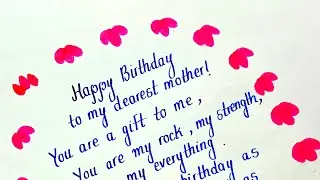 Happy Birthday
to my dearest mother!
You are a gift to me,
You are my rock, my strength,
my everything.
birthday as